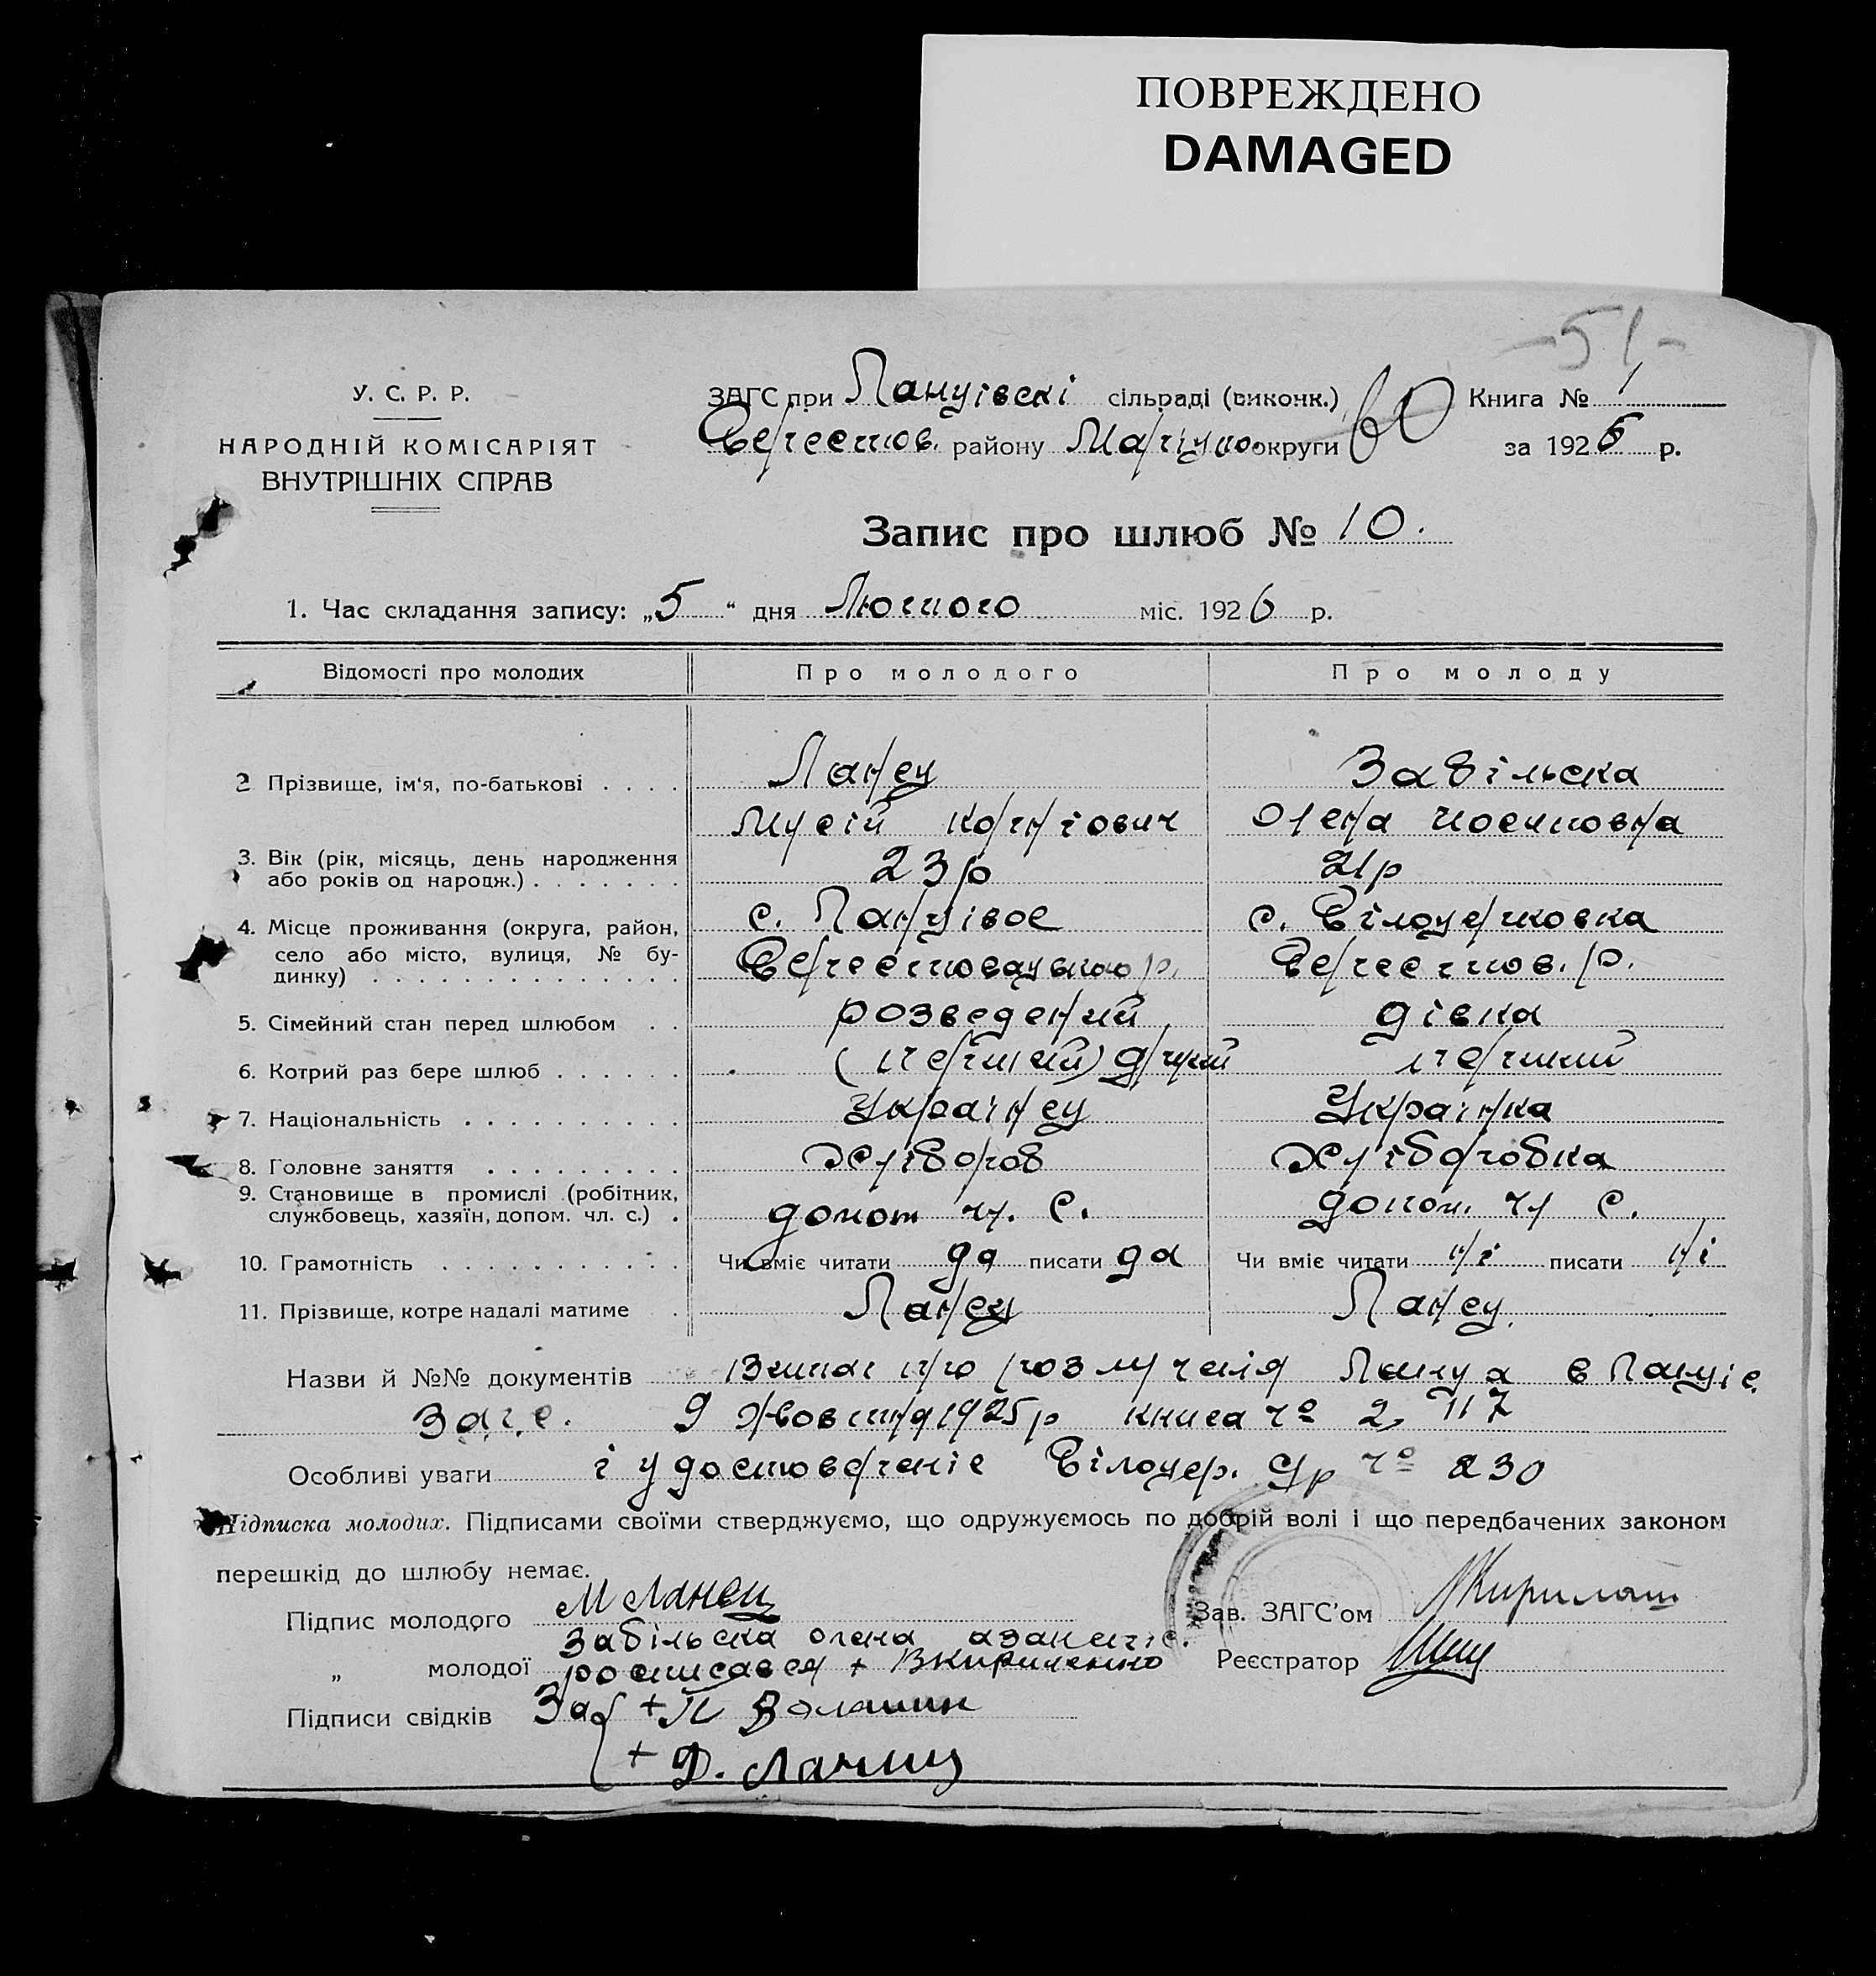 ПОВРЕЖДЕНО
DAMAGED
-51-
У. С. Р. Р.
НАРОДНІЙ КОМІСАРІЯТ
ВНУТРІШНІХ СПРАВ
ЗАГС при Ланцівскі сільраді (виконк.) Книга № 1
Берестов. району Маріупо. округи 60 за 1926 р.
Запис про шлюб № 10.
1. Час складання запису: „5“ дня Лютого міс. 1926 р.
Відомості про молодих Про молодого Про молоду
2 Прізвище, ім‘я, по-батькові . . . . Ланец Забільска
Мусій Олена
3. Вік (рік, місяць, день народження
або років од народж.) . . . . . . . 23р 21р
4. Місце проживання (округа, район, с. с. Білоцерковка
село або місто, вулиця, № бу-
динку) . . . . . . . . . . . . . . р. Берестов. р.
5. Сімейний стан перед шлюбом . . розведений дівка
6. Котрий раз бере шлюб . . . . . . (первий) другий первий
7. Національність . . . . . . . . . . Українец Українка
8. Головне заняття . . . . . . . . . Хлібороб Хліборобка
9. Становище в промислі (робітник,
службовець, хазяїн, допом. чл. с.) . допом чл. С. допом. чл С.
10. Грамотність . . . . . . . . . . . Чи вміє читати да писати да Чи вміє читати ні писати ні
11. Прізвище, котре надалі матиме . Ланец Ланец
Назви й №№ документів про Ланца в
Загс. 9 1925р книга № 2, 117
Особливі уваги і удостоверение Білоцер. с/р № 230
Підписка молодих. Підписами своїми стверджуємо, що одружуємось по добрій волі і що передбачених законом
перешкід до шлюбу немає.
Підпис молодого М Ланец Зав. ЗАГС’ом
Забільска олена
„ молодої росписався + В Кириченко Реєстратор
Підписи свідків За { + П
+ Д.